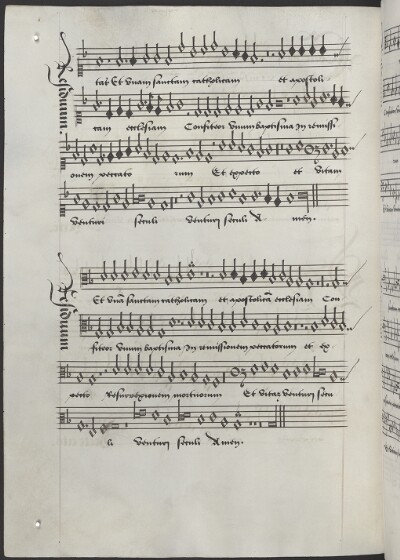 Residuum
tas Et unam sanctam catholicam et apostoli
cam ecclesiam Confiteor Unum baptisma In remissi
onem peccato rum Et expecto et Vitam
Venturi seculi Venturi seculi A men.
Residuum
Et unā sanctam catholicam et apostolicā ecclesiam Con
fiteor Unum baptisma In remissionem peccatorum et ex
pecto Resurrexionem mortuorum Et Vitam Venturi secu
li Venturi seculi Amen.